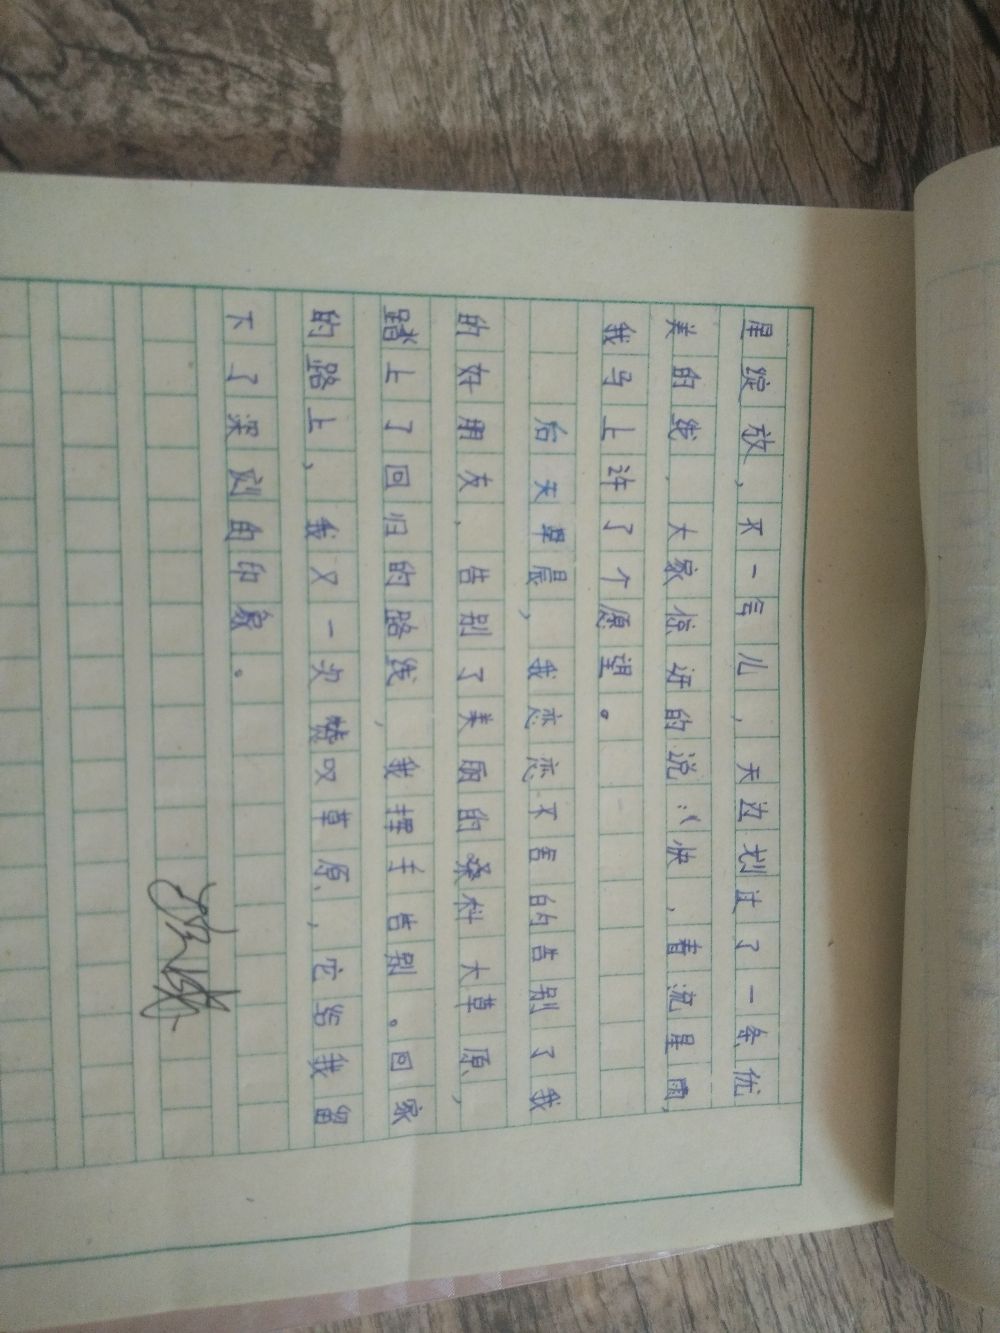 星绽放，不一会儿，天边划过了一条优
美的线，大家惊讶的说：“快，看流星雨，
我马上许了个愿望。
给天早晨，我恋恋不舍的告别了我
的好朋友，告别了美丽的桑科大草原，
踏上了回归的路线，我挥手告别。回家
的路上，我又一次赞叹草原，它给我留
下了深刻的印象。